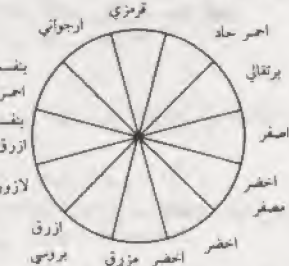 قرمزي
احمر حاد
برتقالي
اصفر
اخضر
مصفر
اخضر
اخضر مزرق
ازرق
بروسي
ازرق
احمر
ارجواني